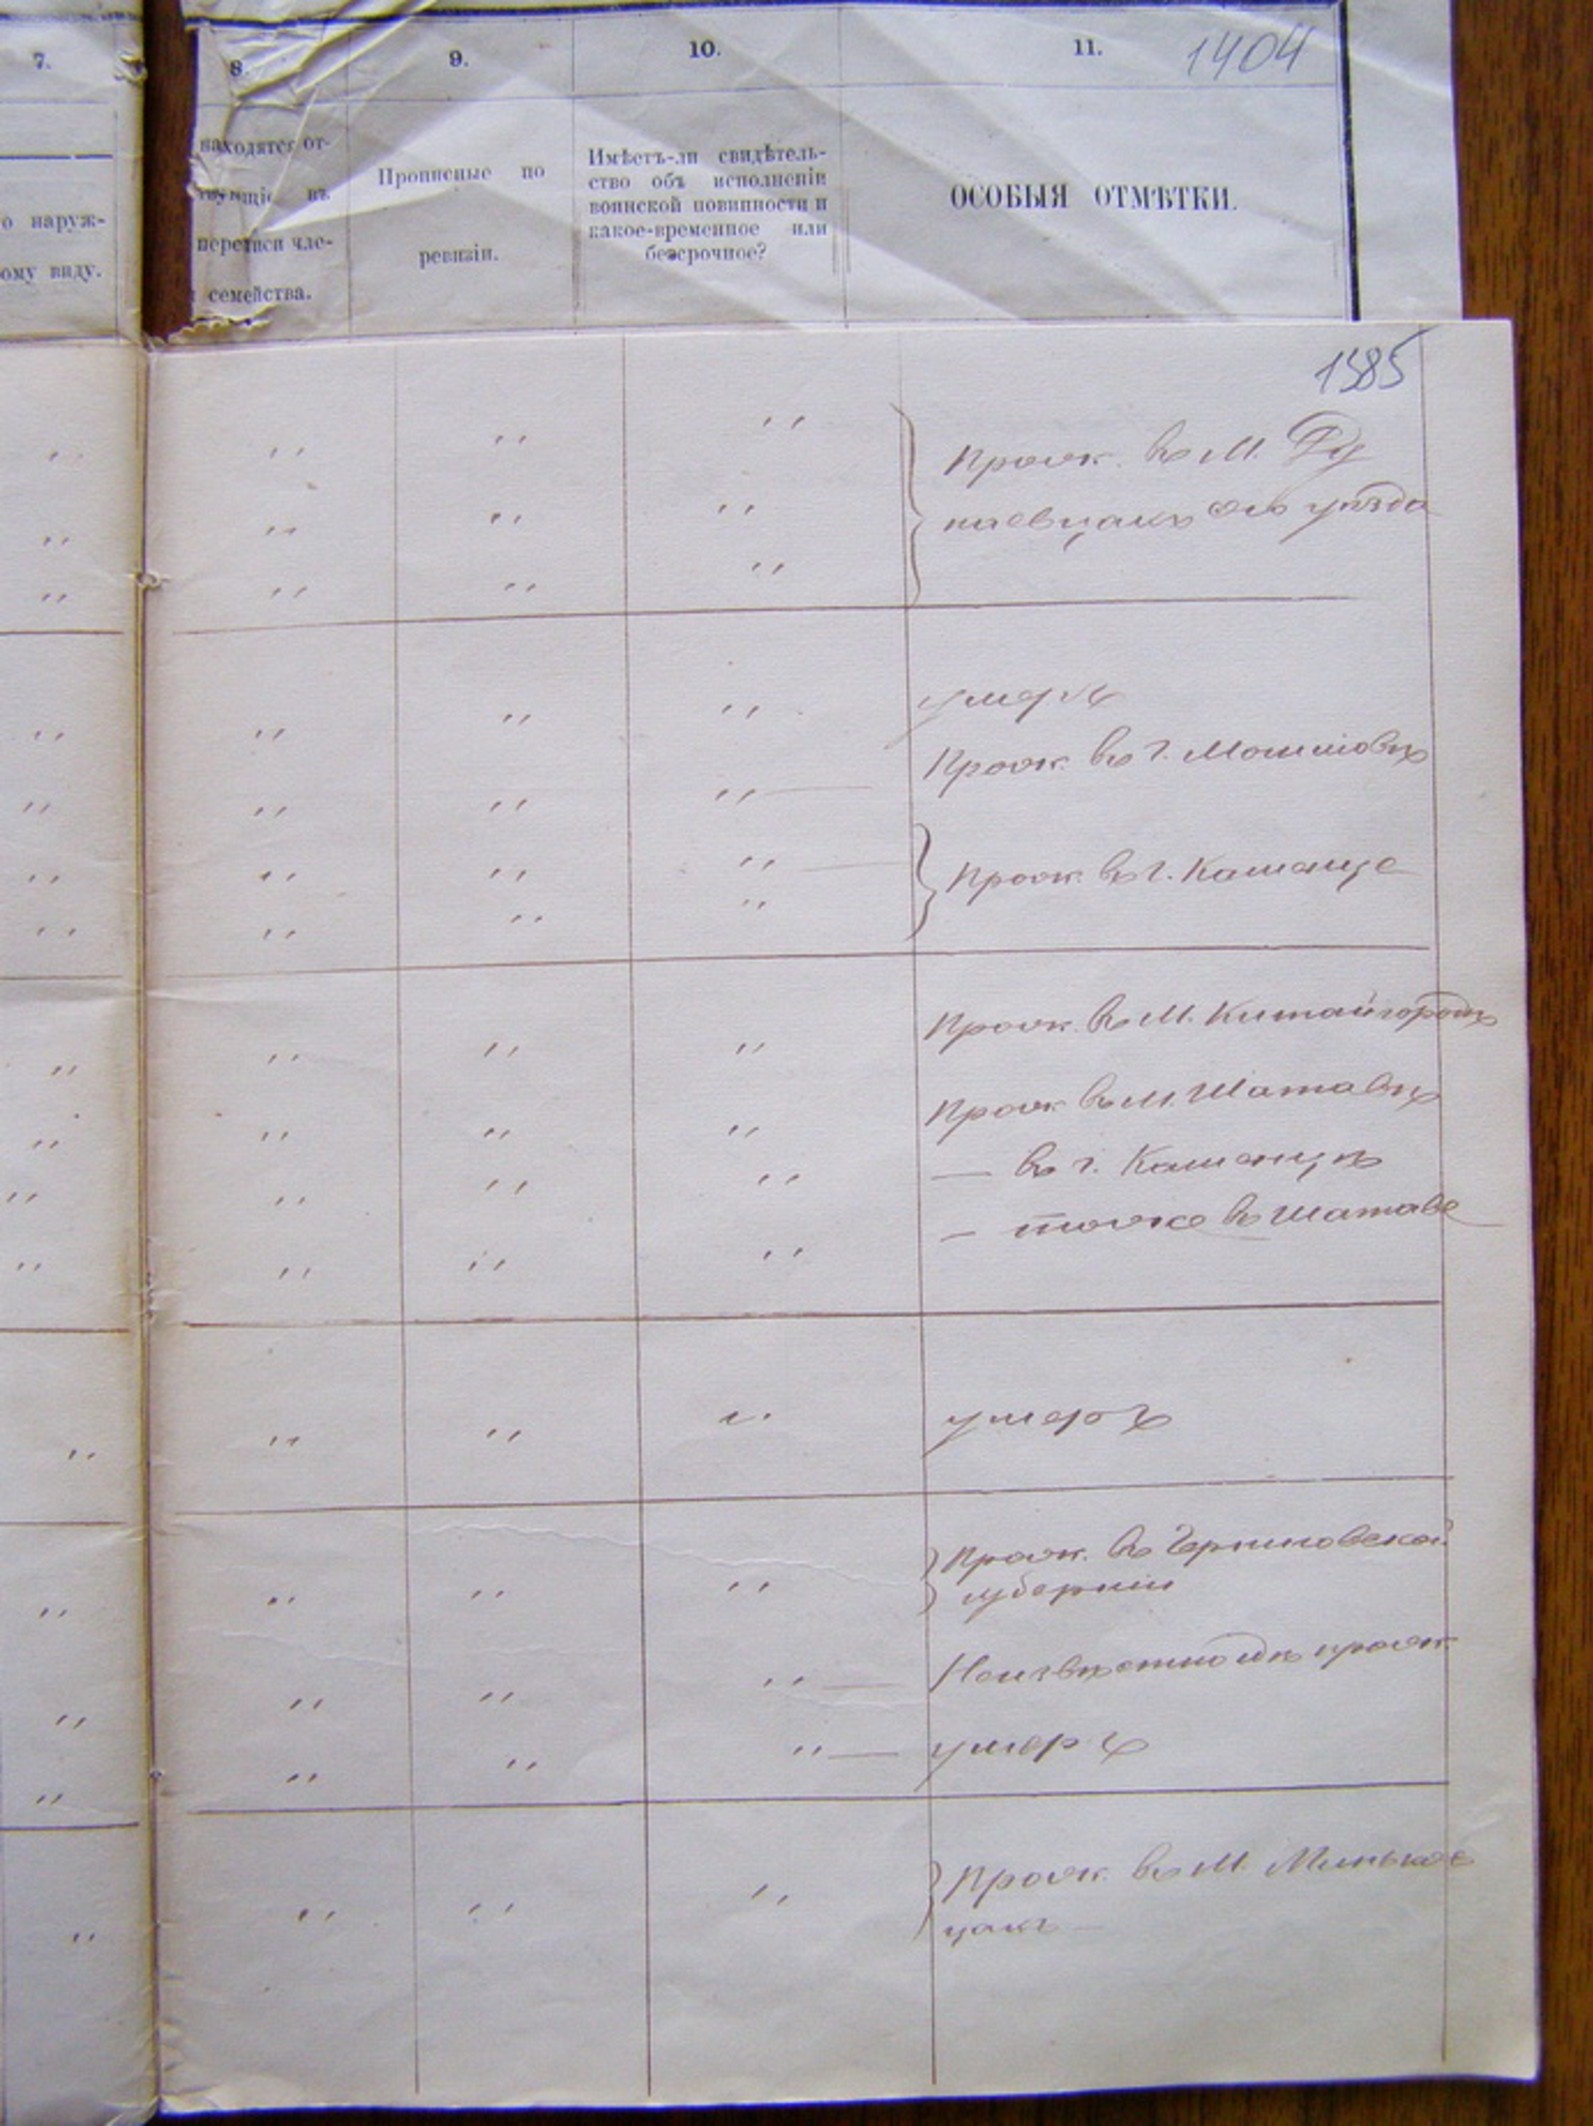 7.
8.
9.
10.
11.
1404
о наруж-
ому виду.
находятся от-
твующіе въ
переписи чле-
семейства.
Прописные по
ревизіи.
Имѣетъ-ли свидѣтель-
ство объ исполненіи
воинской повинности и
какое-временное или
безсрочное?
ОСОБЫЯ ОТМѢТКИ.
1385
Прож. въ М. Ду
наевцахъ уѣзда
умеръ
Прож. въ г.
Прож. въ г. Каменце
Прож. въ М. Китайгородѣ
Прож въ М. Шатавѣ
— въ г. Каменцѣ
— тоже въ Шатаве
умеръ
Прож. въ Черниговской
губерніи
Неизвѣстно гдѣ прож.
умеръ
Прож. въ М. Миньков
цахъ —